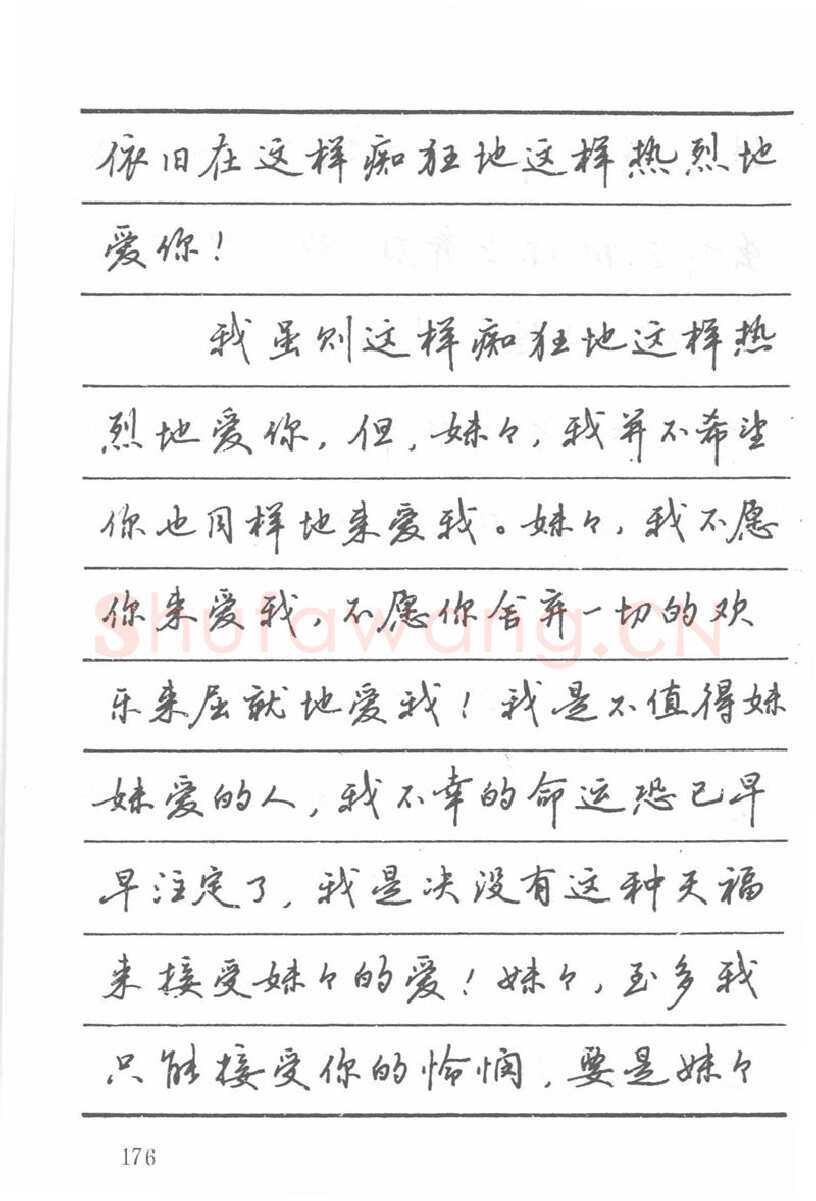 依旧在这样痴狂地这样热烈地
爱你！
我虽则这样痴狂地这样热
烈地爱你，但，妹々，我并不希望
你也同样地来爱我。妹々，我不愿
你来爱我，不愿你舍弃一切的欢
乐来屈就地爱我！我是不值得妹
妹爱的人，我不幸的命运恐已早
早注定了，我是决没有这种天福
来接受妹々的爱！妹々，至多我
只能接受你的怜悯，要是妹々
176
Shufawang.CN